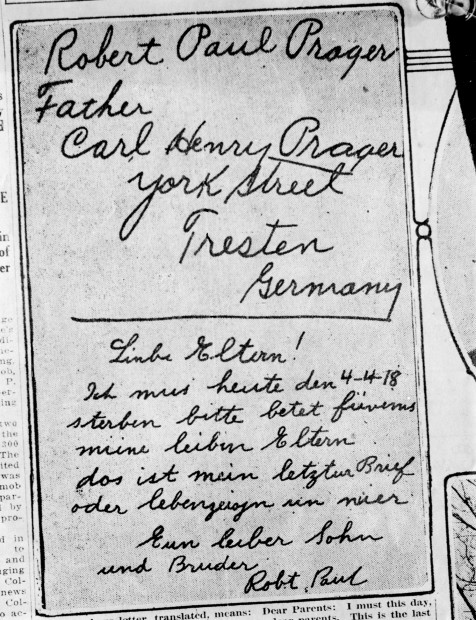 Robert Paul Prager
Father
Carl Henry Prager
York Street
Tresten
Germany
Liebe Eltern!
Ich mus heute den 4-4-18
sterben bitte betet
meine leiben Eltern
dos ist mein letzter Brief
oder
Eun leiber Sohn
und Bruder
Robt. Paul
letter, translated, means: Dear Parents: I must this day,
parents. This is the last